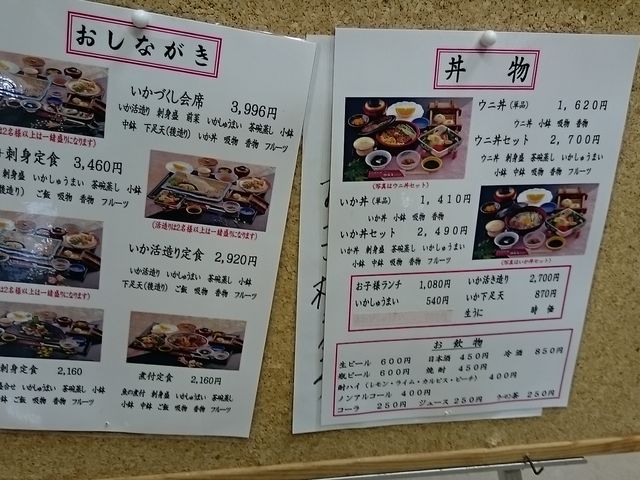 おしながき
いかづくし会席 3,996円
いか活造り 刺身盛 前菜 いかしゅうまい 茶碗蒸し 小鉢
中鉢 下足天(後造り) いか丼 吸物 香物 フルーツ
は2名様以上は一緒盛りになります)
刺身定食 3,460円
刺身盛 いかしゅうまい 茶碗蒸し 小鉢
(後造り) ご飯 吸物 香物 フルーツ
(活造りは2名様以上は一緒盛りになります)
いか活造り定食 2,920円
いか活造り いかしゅうまい 茶碗蒸し 小鉢
下足天(後造り) ご飯 吸物 香物 フルーツ
は2名様以上は一緒盛りになります)
刺身定食 2,160
盛合せ いかしゅうまい 茶碗蒸し 小鉢
ご飯 吸物 香物 フルーツ
煮付定食 2,160円
魚の煮付 刺身盛 いかしゅうまい 茶碗蒸し
小鉢 中鉢 ご飯 吸物 香物 フルーツ
丼物
ウニ丼(単品) 1,620円
ウニ丼 小鉢 吸物 香物
ウニ丼セット 2,700円
ウニ丼 刺身盛 茶碗蒸し いかしゅうまい
小鉢 中鉢 吸物 香物 フルーツ
(写真はウニ丼セット)
いか丼(単品) 1,410円
いか丼 小鉢 吸物 香物
いか丼セット 2,490円
いか丼 刺身盛 茶碗蒸し いかしゅうまい
小鉢 中鉢 吸物 香物 フルーツ
(写真はいか丼セット)
お子様ランチ 1,080円 いか活き造り 2,700円
いかしゅうまい 540円 いか下足天 870円
生うに 時価
お飲物
生ビール 600円 日本酒 450円 冷酒 850円
瓶ビール 600円 焼酎 450円
酎ハイ(レモン・ライム・カルピス・ピーチ) 400円
ノンアルコール 400円
コーラ 250円 ジュース 250円 ウーロン茶 250円